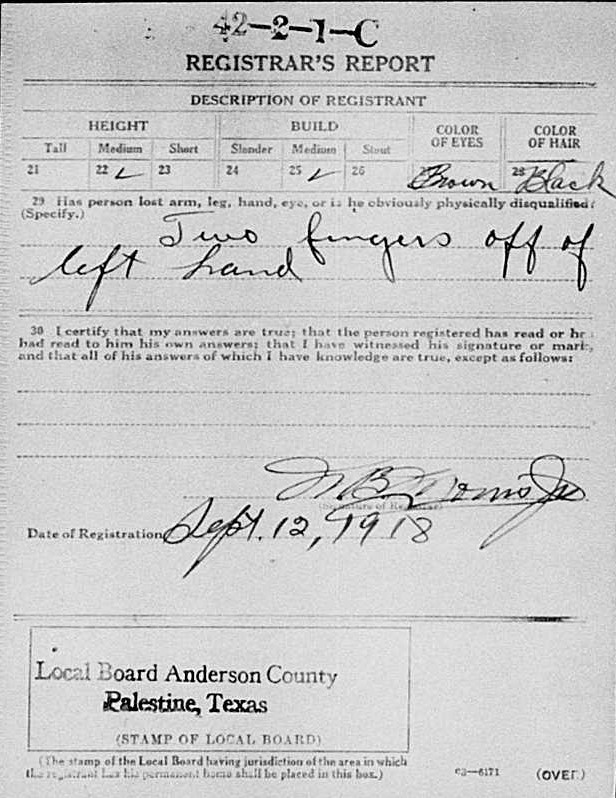 42-2-1-C
REGISTRAR'S REPORT
DESCRIPTION OF REGISTRANT
HEIGHT BUILD COLOR OF EYES COLOR OF HAIR
Tall Medium Short Slender Medium Stout
21 22 ✓ 23 24 25 ✓ 26 Brown 28 Black
29 Has person lost arm, leg, hand, eye, or is he obviously physically disqualified?
(Specify.)
Two fingers off of
left hand
30 I certify that my answers are true; that the person registered has read or
had read to him his own answers; that I have witnessed his signature or mark,
and that all of his answers of which I have knowledge are true, except as follows:
(Signature of Registrar)
Date of Registration Sept. 12, 1918
Local Board Anderson County
Palestine, Texas
(STAMP OF LOCAL BOARD)
(The stamp of the Local Board having jurisdiction of the area in which
the registrant has his permanent home shall be placed in this box.)
03-6171 (OVER)